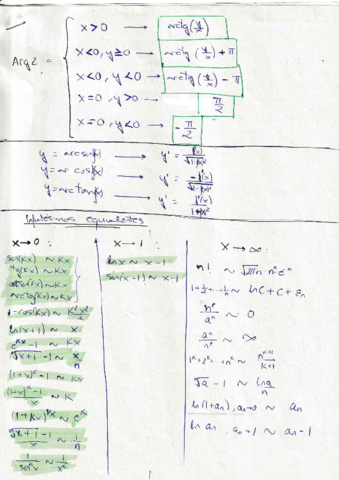 Arg z =
x>0 → arctg(y/x)
x<0, y≥0 → arctg(y/x) + π
x<0, y<0 → arctg(y/x) - π
x=0, y>0 → π/2
x=0, y<0 → -π/2
y = arcsenf(x) → y' = f'(x)/√(1-f(x)²)
y = arcosf(x) → y' = -f'(x)/√(1-f(x)²)
y = arctanf(x) → y' = f'(x)/(1+f(x)²)
Infinitésimos equivalentes
x→0 :
sen(kx) ~ kx
tg(kx) ~ kx
arcsen(kx) ~ kx
arctg(kx) ~ kx
1-cos(kx) ~ k²x²/2
ln(x+1) ~ x
e^kx - 1 ~ kx
ⁿ√(x+1) - 1 ~ x/n
(1+x)^k - 1 ~ kx
~ k
(1+kx)
~ 1/n
~ 1/x²
x→1
lnx ~ x-1
sen(x-1) ~ x-1
x→∞ :
n! ~ √(2πn) nⁿe⁻ⁿ
1+1/2+...+1/n ~ ln n + C + εn
~ 0
~ ∞
1^k+2^k+...+n^k ~ n^(k+1)/(k+1)
ⁿ√a - 1 ~ lna/n
ln(1+an), an→0 ~ an
ln an, an→1 ~ an-1
1